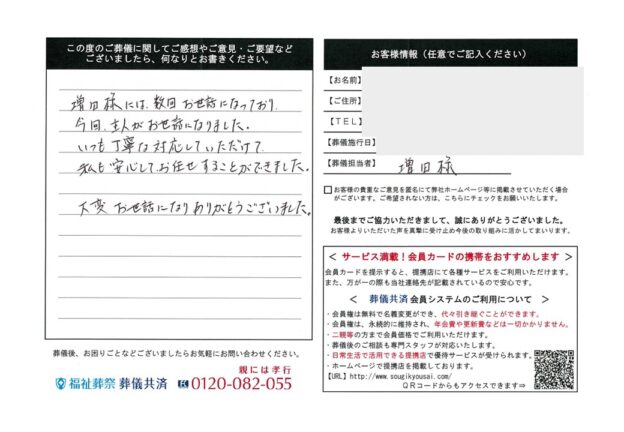 この度のご葬儀に関してご感想やご意見・ご要望など
ございましたら、何なりとお書きください。
増田様には、数回お世話になっており、
今回、主人がお世話になりました。
いつも丁寧な対応していただけて
私も安心してお任せすることができました。
大変お世話になりありがとうございました。
葬儀後、お困りごとなどございましたらお気軽にお問い合わせください。
親には孝行
福祉葬祭 葬儀共済 0120-082-055
お客様情報（任意でご記入ください）
【お名前】
【ご住所】
【TEL】
【葬儀施行日】
【葬儀担当者】 増田様
□お客様の貴重なご意見を匿名にて弊社ホームページ等に掲載させていただく場合
がございます。ご希望されない方は、こちらにチェックをお願いいたします。
最後までご協力いただきまして、誠にありがとうございました。
お客様よりいただいた声を真摯に受け止め今後の取り組みに活かしてまいります。
＜ サービス満載！会員カードの携帯をおすすめします ＞
会員カードを提示すると、提携店にて各種サービスをご利用いただけます。
また、万が一の際も当社連絡先が記載されているので安心です。
＜ 葬儀共済 会員システムのご利用について ＞
・会員権は無料で名義変更ができ、代々引き継ぐことができます。
・会員権は、永続的に維持され、年会費や更新費などは一切かかりません。
・二親等の方まで会員価格でご利用いただけます。
・葬儀後のご相談も専門スタッフが対応いたします。
・日常生活で活用できる提携店で優待サービスが受けられます。
・ホームページで提携店を掲載しております。
【URL】http://www.sougikyousai.com/
QRコードからもアクセスできます⇒